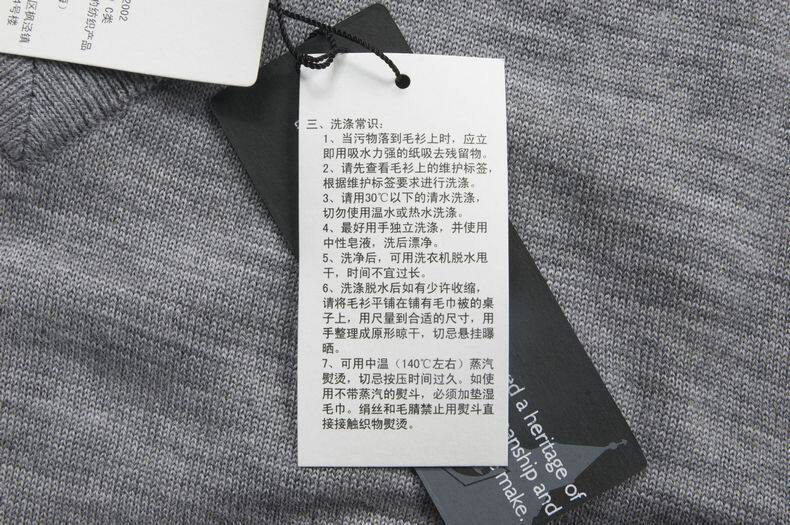 2002
C类
的纺织产品
区枫泾镇
4号楼
三、洗涤常识:
1、当污物落到毛衫上时，应立
即用吸水力强的纸吸去残留物。
2、请先查看毛衫上的维护标签，
根据维护标签要求进行洗涤。
3、请用30℃以下的清水洗涤，
切勿使用温水或热水洗涤。
4、最好用手独立洗涤，并使用
中性皂液，洗后漂净。
5、洗净后，可用洗衣机脱水甩
干，时间不宜过长。
6、洗涤脱水后如有少许收缩，
请将毛衫平铺在铺有毛巾被的桌
子上，用尺量到合适的尺寸，用
手整理成原形晾干，切忌悬挂曝
晒。
7、可用中温（140℃左右）蒸汽
熨烫，切忌按压时间过久。如使
用不带蒸汽的熨斗，必须加垫湿
毛巾。绢丝和毛腈禁止用熨斗直
接接触织物熨烫。
a heritage of
anship and
make.